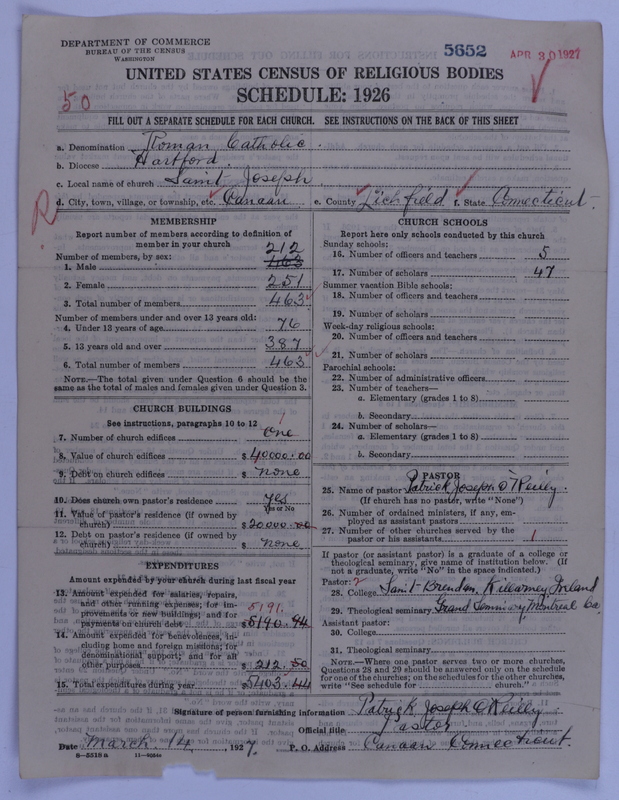 DEPARTMENT OF COMMERCE
BUREAU OF THE CENSUS
WASHINGTON
5652
APR 30 1927
UNITED STATES CENSUS OF RELIGIOUS BODIES
SCHEDULE: 1926
50
FILL OUT A SEPARATE SCHEDULE FOR EACH CHURCH. SEE INSTRUCTIONS ON THE BACK OF THIS SHEET
a. Denomination Roman Catholic.
b. Diocese Hartford.
c. Local name of church Saint Joseph
d. City, town, village, or township, etc. Canaan e. County Lichfield f. State Connecticut.
R
MEMBERSHIP
Report number of members according to definition of
member in your church
Number of members, by sex: 212
1. Male 463
2. Female 251
3. Total number of members 463
Number of members under and over 13 years old:
4. Under 13 years of age 76
5. 13 years old and over 387
6. Total number of members 463
NOTE.—The total given under Question 6 should be the
same as the total of males and females given under Question 3.
CHURCH BUILDINGS
See instructions, paragraphs 10 to 12
1
7. Number of church edifices One
8. Value of church edifices $40000.00
9. Debt on church edifices $None
10. Does church own pastor's residence yes
Yes or No
11. Value of pastor's residence (if owned by
church) $20000.00
12. Debt on pastor's residence (if owned by
church) $None
EXPENDITURES
Amount expended by your church during last fiscal year
13. Amount expended for salaries, repairs,
and other running expenses; for im-
provements or new buildings; and for 5191.
payments on church debt $5190.94
14. Amount expended for benevolences, in-
cluding home and foreign missions; for
denominational support; and for all
other purposes $212.50
15. Total expenditures during year $5403.44
CHURCH SCHOOLS
Report here only schools conducted by this church
Sunday schools:
16. Number of officers and teachers 5
17. Number of scholars 47
Summer vacation Bible schools:
18. Number of officers and teachers
19. Number of scholars
Week-day religious schools:
20. Number of officers and teachers
21. Number of scholars
Parochial schools:
22. Number of administrative officers
23. Number of teachers—
a. Elementary (grades 1 to 8)
b. Secondary
24. Number of scholars—
a. Elementary (grades 1 to 8)
b. Secondary
PASTOR
25. Name of pastor Patrick Joseph O'Reilly.
(If church has no pastor, write "None")
26. Number of ordained ministers, if any, em-
ployed as assistant pastors
27. Number of other churches served by the
pastor or his assistants 1
If pastor (or assistant pastor) is a graduate of a college or
theological seminary, give name of institution below. (If
not a graduate, write "No" in the space indicated.)
Pastor: 2
28. College Saint Brendan, Killarney, Ireland
29. Theological seminary Grand Seminary Montreal Ca.
Assistant pastor:
30. College
31. Theological seminary
NOTE.—Where one pastor serves two or more churches,
Questions 28 and 29 should be answered only on the schedule
for one of the churches; on the schedules for the other churches,
write "See schedule for church."
Signature of person furnishing information Patrick Joseph O'Reilly
Official title Pastor
Date March 14, 1927. P. O. Address Canaan Connecticut.
8—5518 a 11—9034a